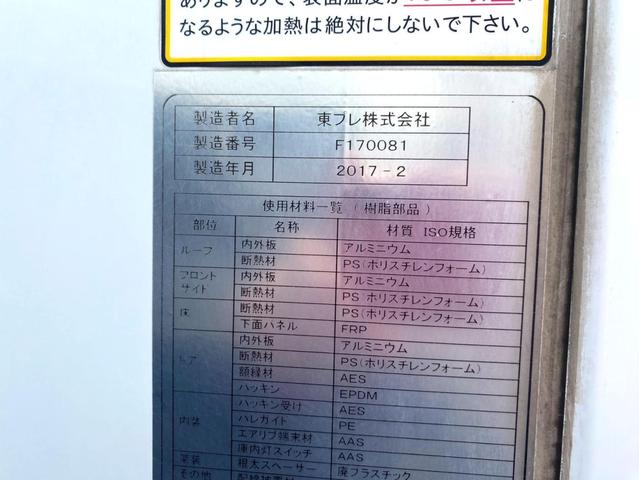 ありますので、表面温度が
なるような加熱は絶対にしないで下さい。
製造者名 東プレ株式会社
製造番号 F170081
製造年月 2017-2
使用材料一覧 (樹脂部品)
部位 名称 材質 ISO規格
ルーフ 内外板 アルミニウム
断熱材 PS(ホリスチレンフォーム)
フロント サイト 内外板 アルミニウム
断熱材 PS(ホリスチレンフォーム)
床 断熱材 PS(ホリスチレンフォーム)
下面パネル FRP
ドア 内外板 アルミニウム
断熱材 PS(ホリスチレンフォーム)
額縁材 AES
ハッキン EPDM
内装 ハッキン受け AES
ハレガイト PE
エアリブ端末材 AAS
庫内灯スイッチ AAS
架装 根太スペーサー 廃プラスチック
その他